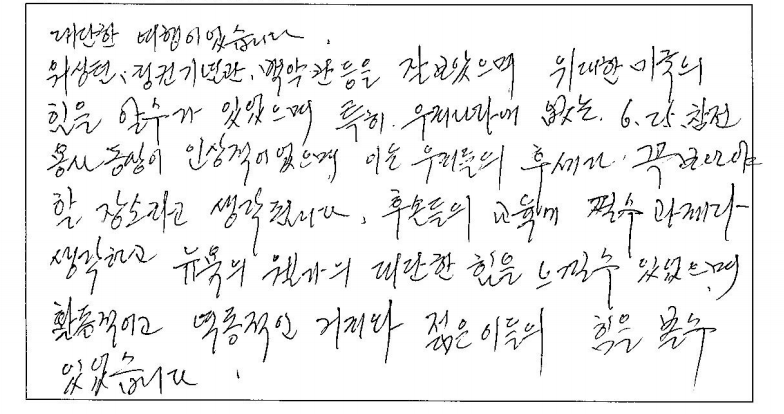 대단한 여행이었습니다.
워싱턴, 링컨기념관, 백악관 등을 잘 보았으며 위대한 미국의
힘을 알 수가 있었으며 특히 우리나라에 없는 6.25 참전
용사 동상이 인상적이었으며 이는 우리들의 후세가 꼭 보아야
할 장소라고 생각됩니다. 후손들의 교육에 필수 과제라
생각하고 뉴욕의 월가의 대단한 힘을 느낄 수 있었으며
활동적이고 역동적인 거리와 젊은이들의 힘을 볼 수
있었습니다.